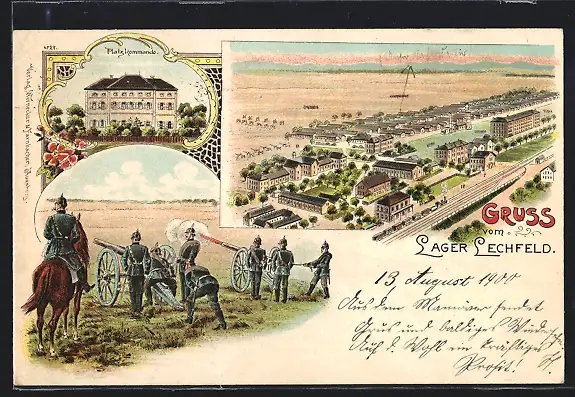 N° 27.
Platzkommando.
GRUSS
vom
LAGER LECHFELD.
13 August 1900
Aus dem Manöver sendet
Gruss und baldiges Wieder
Auf d. Wohl ein kräftiges
Prosit!